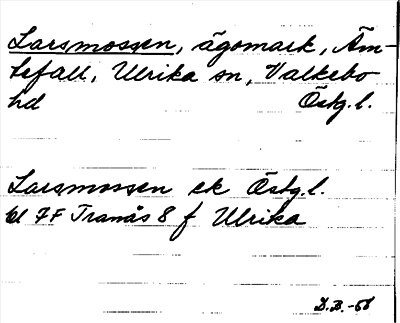 Larsmossen, ägomark, Äm-
tefall, Ulrika sn, Valkebo
hd Östg.l.
Larsmossen ek Östg.l.
bl 7F Tranås 8 f Ulrika
D.B. -56